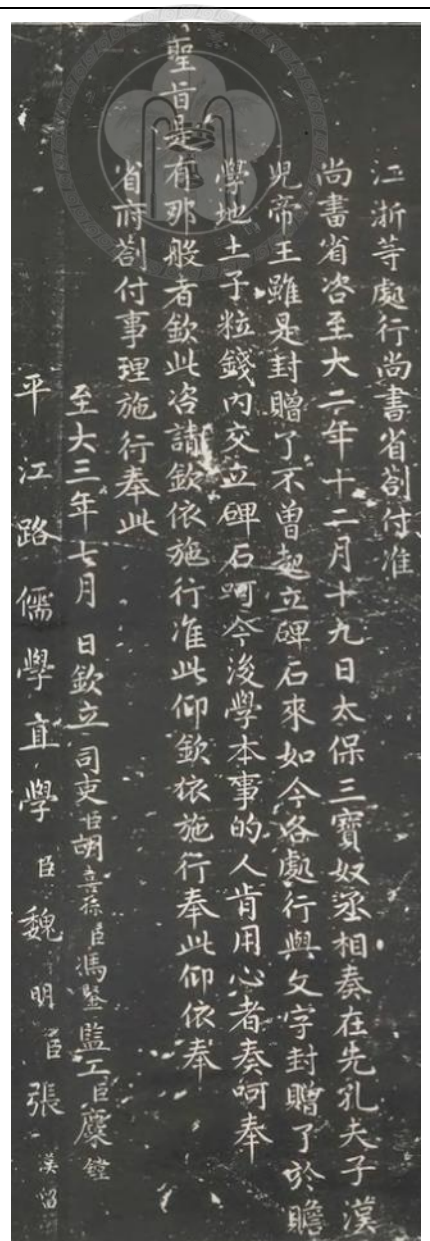 江浙等處行尚書省劄付准
尚書省咨至大二年十二月十九日太保三寶奴丞相奏在先孔夫子漢
兒帝王雖是封贈了不曾起立碑石來如今各處行與文字封贈了於贍
學地土子粒錢內交立碑石呵今後學本事的人肯用心者奏呵奉
聖旨是有那般者欽此咨請欽依施行准此仰欽依施行奉此仰依奉
省府劄付事理施行奉此
至大三年七月 日欽立司吏臣胡喜孫臣馮 監工臣糜鏜
平江路儒學直學臣魏明臣張